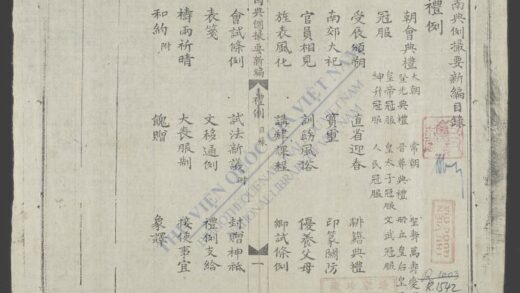 南典例撮要新編目錄
禮例
朝會典禮 大朝 常朝 聖壽萬壽慶
登光典禮 晉尊典禮 冊立皇后皇
冠服 皇帝冠服 皇太子冠服 文武冠服
紳弁冠服 人民冠服
受辰頒朔 直省迎春 耕籍典禮
南郊大祀 寶璽 印篆關防
官員相見 訓飭風俗 優養父母
旌表風化 講肄課程 鄉試條例
會試條例 試法新議附 封贈神祇
表箋 文移通例 禮例支給
禱雨祈晴 大喪服制 接使事宜
和約附 餽贈 象譯
典例撮要新編
禮例
目錄
一
THƯ VIỆN QUỐC GIA VIỆT NAM
NATIONAL LIBRARY OF VIETNAM
R.1542